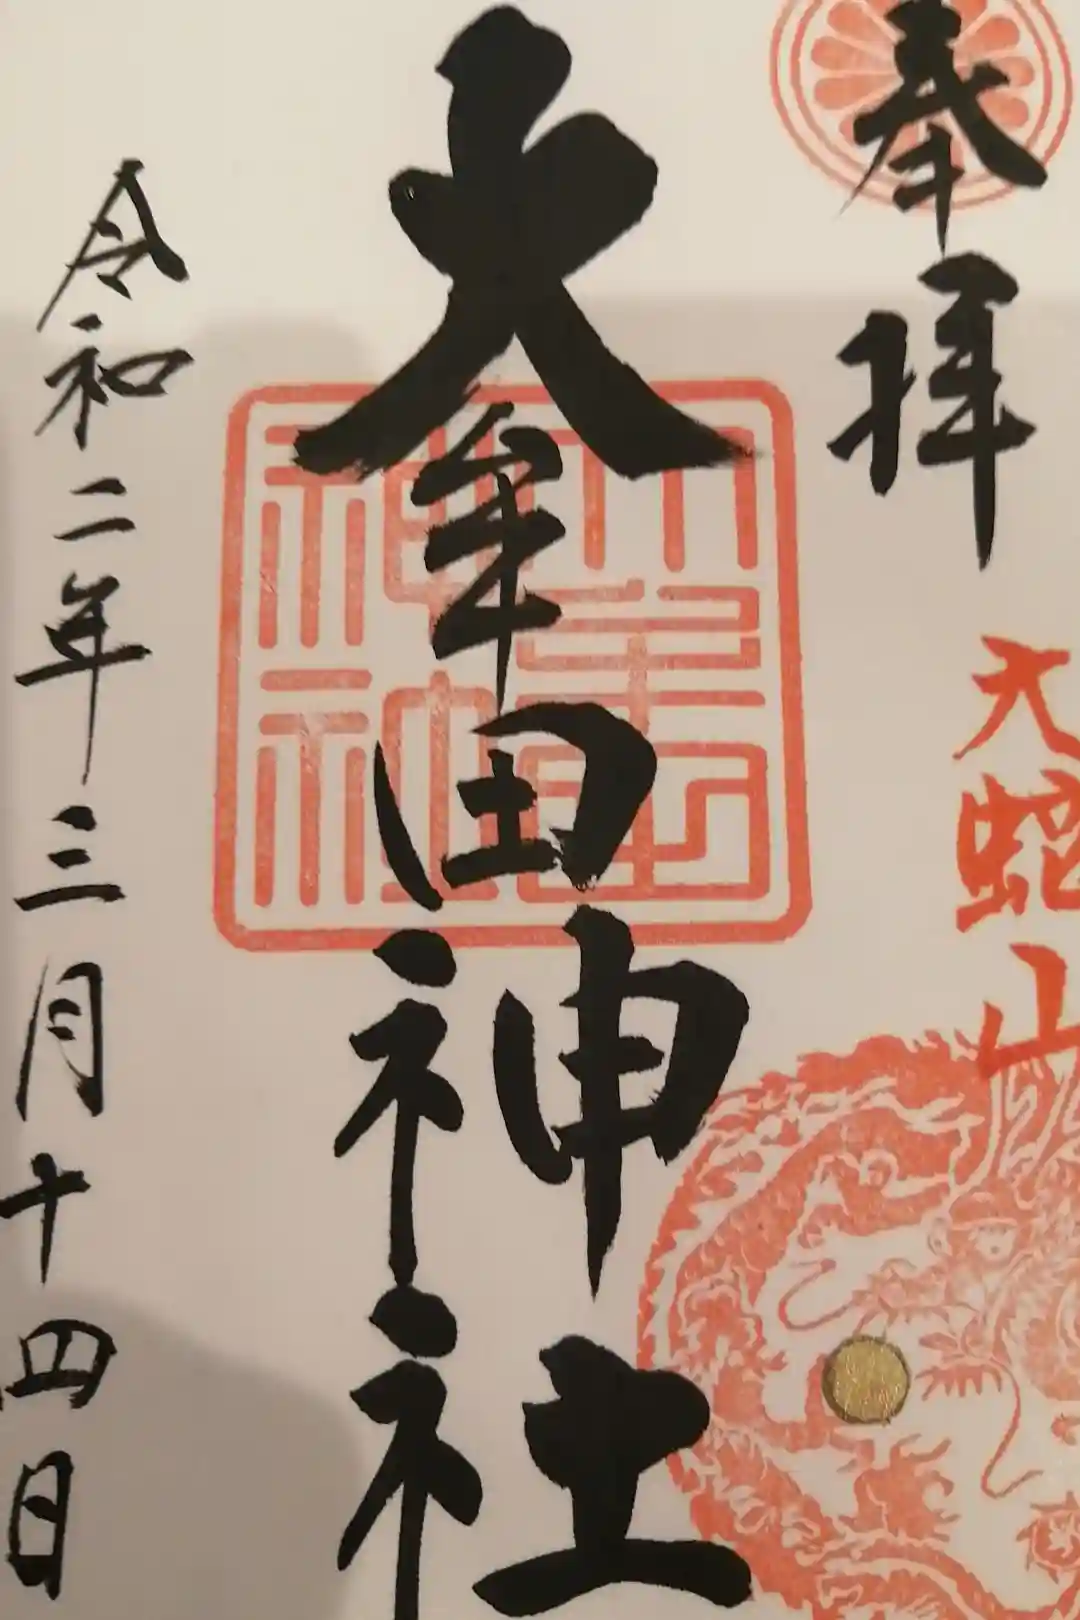 奉拝
大蛇山
大牟田神社
令和二年三月十四日